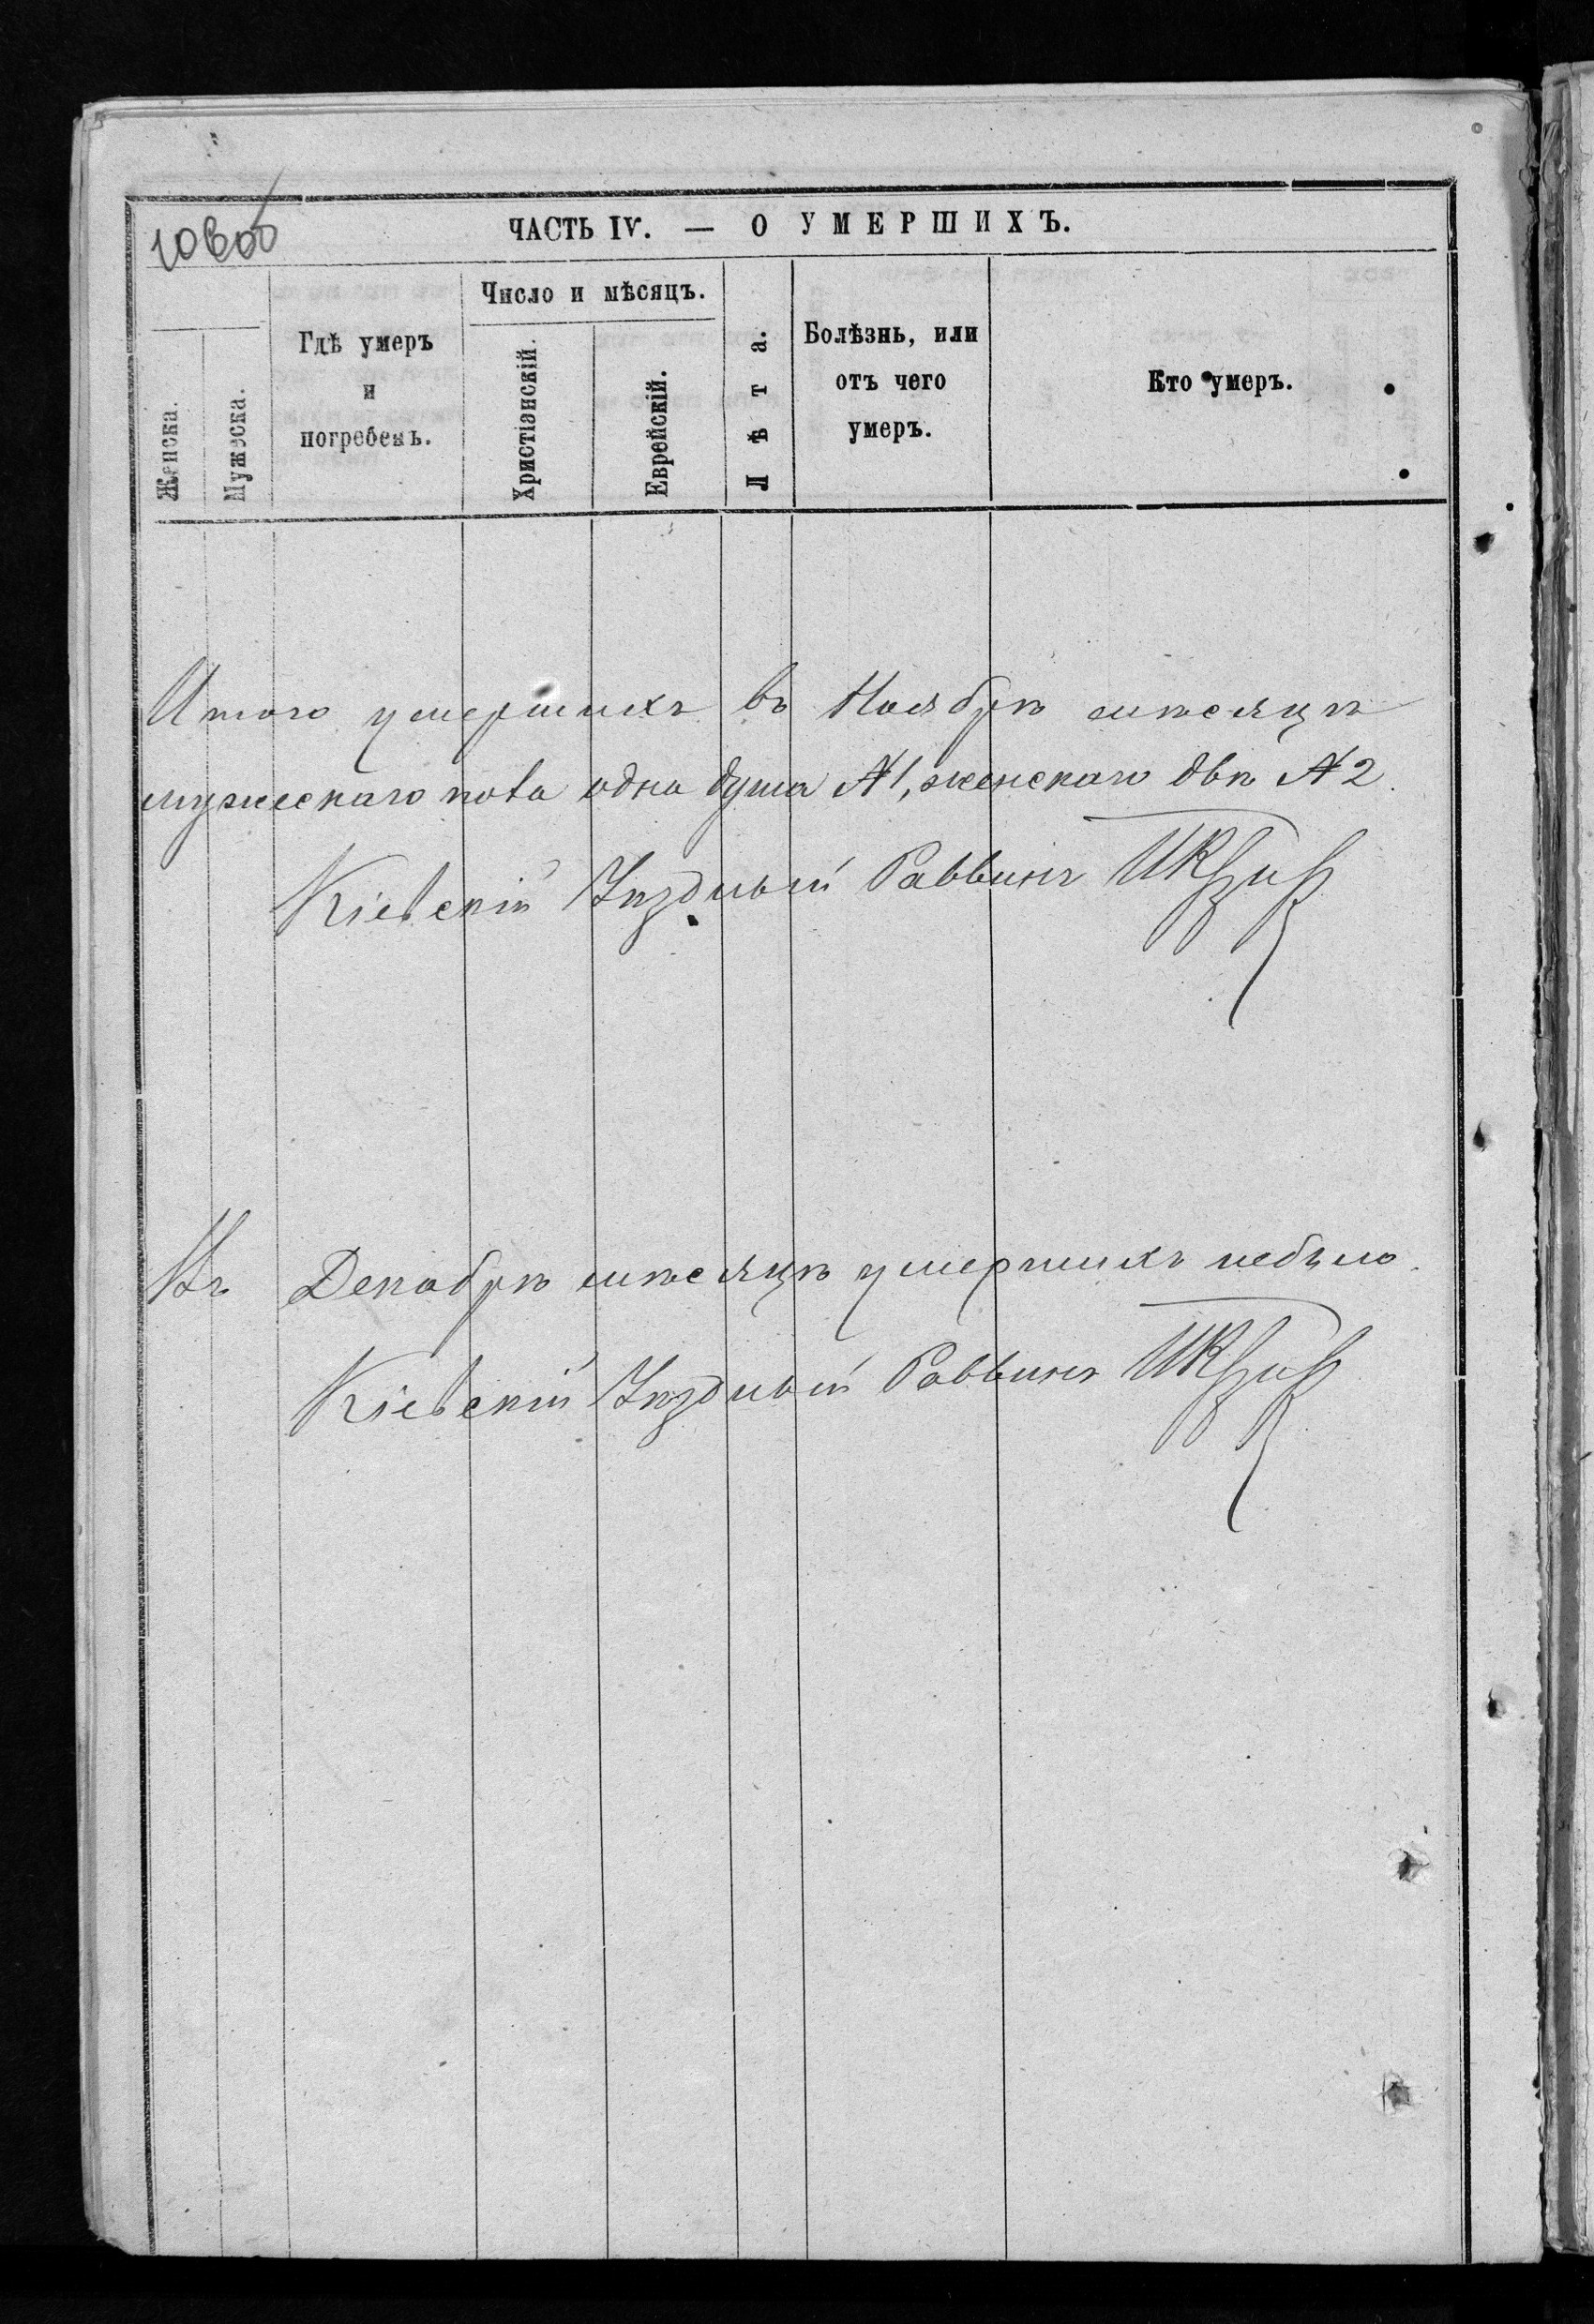 ЧАСТЬ IV. — О УМЕРШИХЪ.
Женска.
Мужеска.
Гдѣ умеръ
и
погребенъ.
Число и мѣсяцъ.
Христіанскій.
Еврейскій.
Лѣта.
Болѣзнь, или
отъ чего
умеръ.
Кто умеръ.
Итого умершихъ въ Ноябрѣ мѣсяцѣ
мужескаго пола одна душа №1, женскаго двѣ №2.
Кіевскій Уѣздный Раввинъ
Въ Декабрѣ мѣсяцѣ умершихъ небыло.
Кіевскій Уѣздный Раввинъ